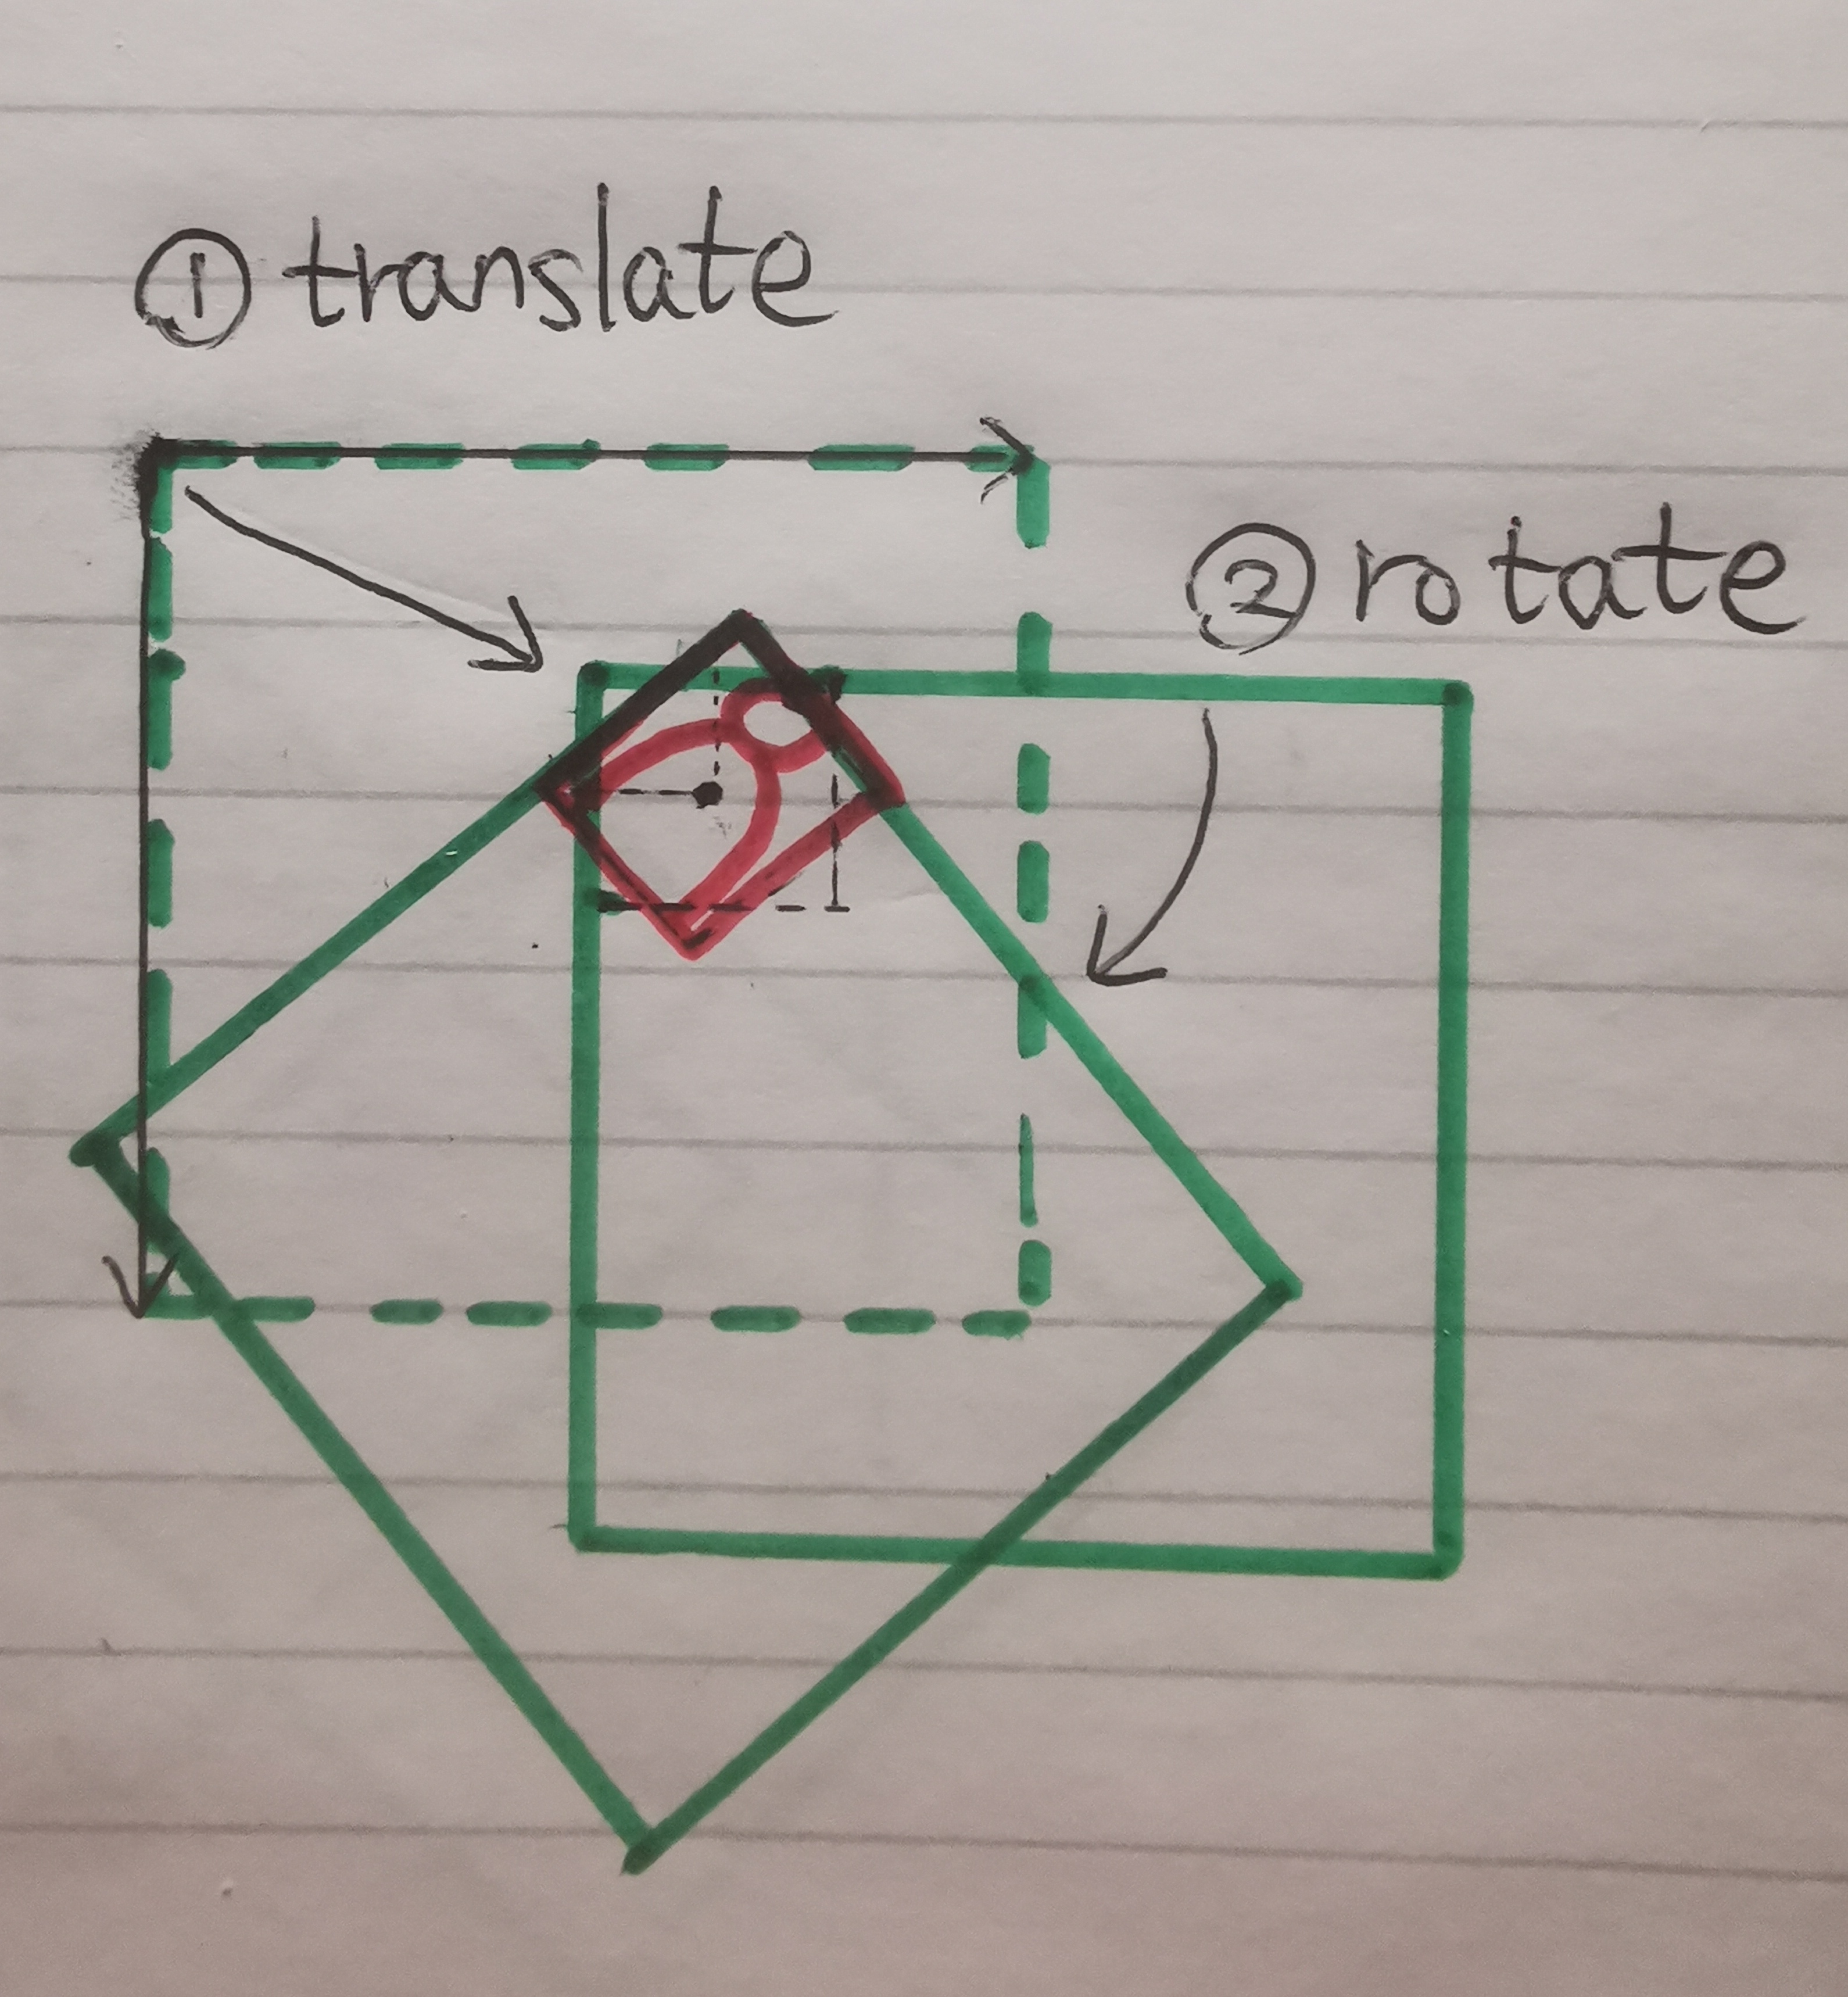 ① translate
② rotate